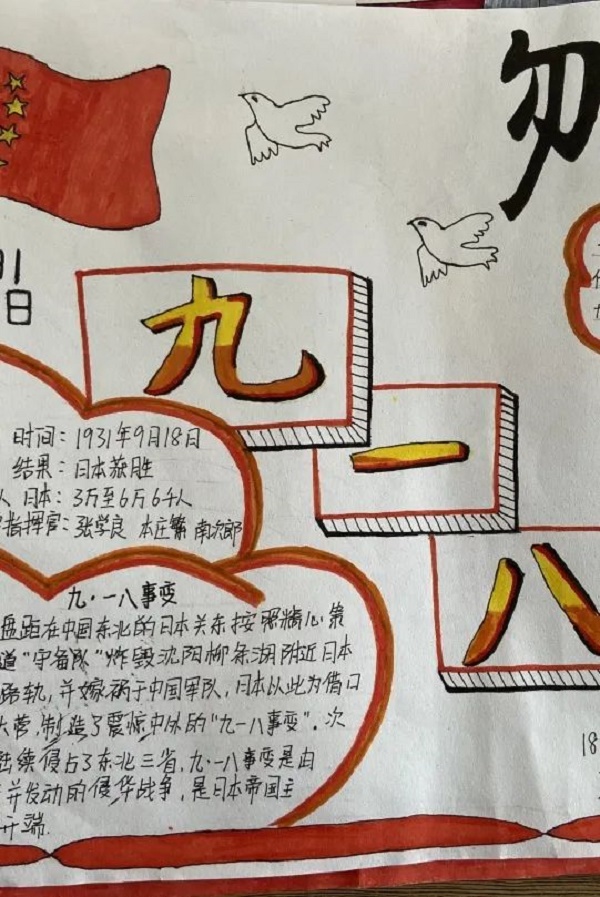 勿
日
九
一
八
时间：1931年9月18日
结果：日本获胜
人 日本：3万至6万6千人
指挥官：张学良 本庄繁 南次郎
九·一八事变
盘距在中国东北的日本关东按照精心策
道"守备队"炸毁沈阳柳条湖附近日本
路轨，并嫁祸于中国军队，日本以此为借口
大营，制造了震惊中外的"九一八事变"．次
陆续侵占了东北三省．九·一八事变是由
并发动的侵华战争，是日本帝国主
开端．
18